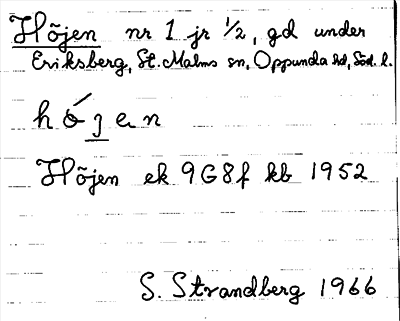 Höjen nr 1 jr 1/2, gd under
Eriksberg, St. Malms sn, Oppunda hd, Söd. l.
hȯ́ȷen
Höjen ek 9G8f kb 1952
S. Strandberg 1966